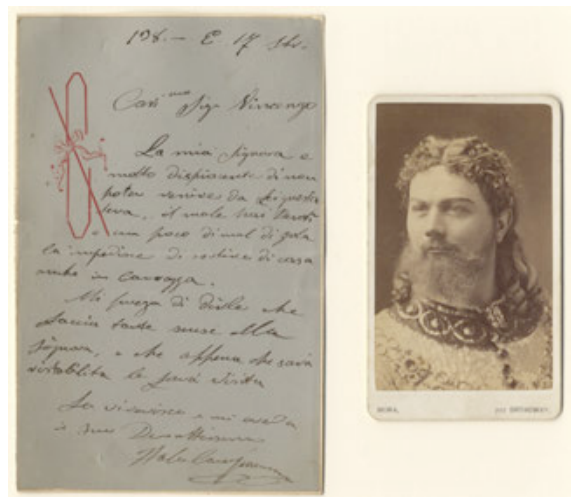 128.- E. 17 Str.
Cariᵐᵒ Sigr Vincenzo
La mia Signora è
molto dispiacente di non
poter venire da Lei questa
sera, il male
e un poco di mal di gola
la impedisce di sortire di casa
anche in carrozza.
Mi prega di dirle che
faccia tante scuse alla
Signora, e che appena che sarà
ristabilita le farà visita
La riverisco e mi
il suo
MORA,
707 BROADWAY.